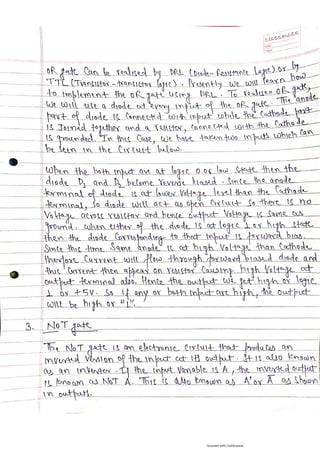 classmate
OR gate Can be realised by DRL (Diode-Resistance Logic) or by
TTL (Transistor-transistor logic). Presently we will learn how
to implement the OR gate using DRL. To realise OR gate,
we will use a diode at every input of the OR gate. The anode
part of diode is Connected with input while the Cathode part
is Joined together and a resistor, connected with the Cathode
is grounded. In this Case, we have taken two inputs which can
be seen in the Circuit below.
When the both input are at logic 0 or low state then the
diode D1 and D2 become reverse biased. Since the anode
terminal of diode is at lower Voltage level than the Cathode
terminal, so diode will act as open Circuit so there is no
Voltage across resistor and hence output Voltage is same as
ground. When either of the diode is at logic 1 or high state
then the diode Corresponding to that input is forward bias.
Since this time anode is at high Voltage than Cathode
therefore Current will flow through forward biased diode and
this Current then appear on resistor Causing high Voltage at
output terminal also. Hence the output we get high or logic
1 or +5V. So if any or both input are high, the output
will be high or "1".
3. NOT gate
The NOT gate is an electronic Circuit that produces an
inverted version of the input at its output. It is also known
as an inverter. If the input variable is A, the inverted output
is known as NOT A. This is also known as A' or Ā as shown
in outputs.
Scanned with CamScanner